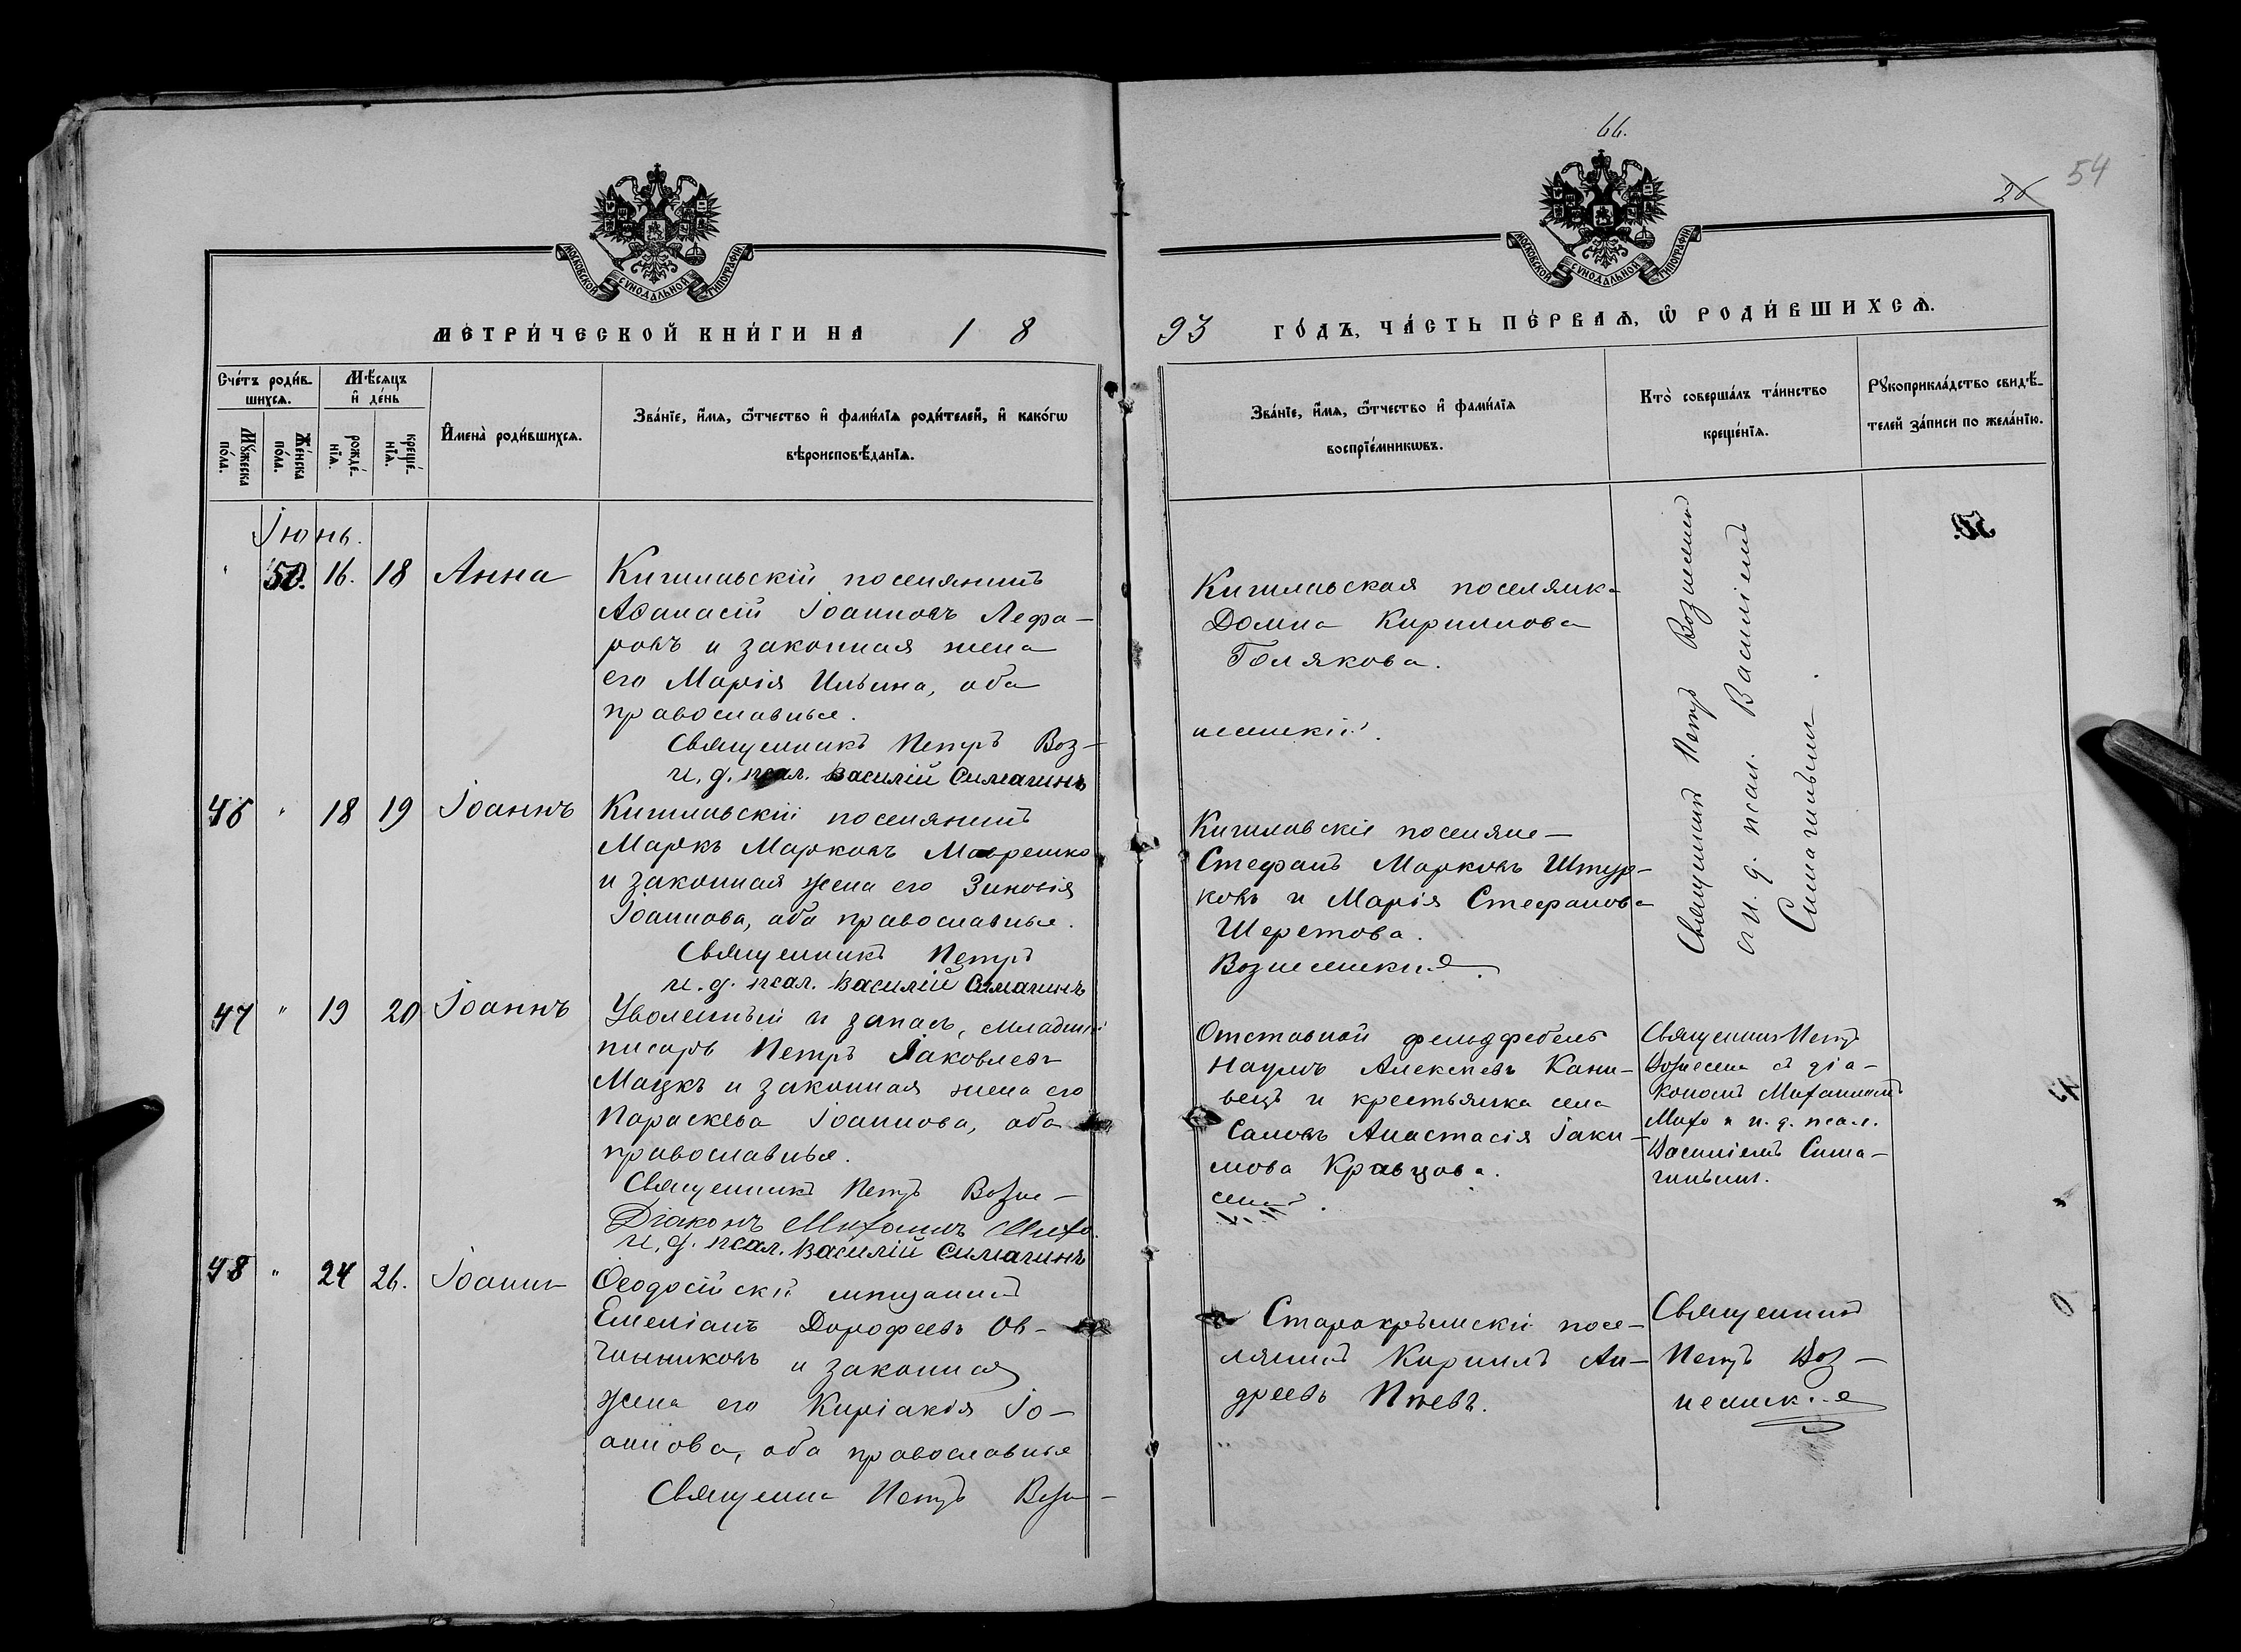 66.
54
26
МОСКОВСКОЙ СѴНОДАЛЬНОЙ ТИПОГРАФІИ
МОСКОВСКОЙ СѴНОДАЛЬНОЙ ТИПОГРАФІИ
МЕТРИ́ЧЕСКОЙ КНИ́ГИ НА 1 8
93 ГО́ДЪ, ЧА́СТЬ ПЕ́РВАѦ, Ѡ҆ РОДИ́ВШИХСѦ.
Сче́тъ роди́в-
шихсѧ.
Мѹ́жеска
по́ла.
Же́нска
по́ла.
Мѣ́сѧцъ
и҆ де́нь
рожде́-
нїѧ.
креще́-
нїѧ.
И҆мена̀ роди́вшихсѧ.
Зва́нїе, и҆́мѧ, ѻ҆́тчество и҆ фами́лїѧ роди́телей, и҆ како́гѡ
вѣроисповѣ́данїѧ.
Зва́нїе, и҆́мѧ, ѻ҆́тчество и҆ фами́лїѧ
воспрїе́мникѡвъ.
Кто̀ соверша́лъ та́инство
креще́нїѧ.
Рꙋкоприкла́дство свидѣ́-
телей за́писи по жела́нїю.
Іюнь.
50. 16. 18 Анна
Кишлавскій поселянинъ
Аѳанасій Іоанновъ Лефа-
ровъ и законная жена
его Марія Ильина, оба
православные.
Священникъ Петръ Воз-
и. д. псал. Василій Симагинъ
Кишлавская поселянк
Домна Кириллова
Голякова.
несенскій.
Священникъ Петръ Вознесенскій
съ и. д. псал. Василіемъ
Симагинымъ.
46 " 18 19 Іоаннъ
Кишлавскій поселянинъ
Маркъ Марковъ Маврешко
и законная жена его Зиновія
Іоаннова, оба православные.
Священникъ Петръ
и. д. псал. Василій Симагинъ
Кишлавскіе поселяне-
Стефанъ Марковъ Штур-
ковъ и Марія Стефанова
Шеретова.
Вознесенскій.
47 " 19 20 Іоаннъ
Уволенный в запасъ, младшій
писарь Петръ Яковлевъ
Мацкъ и законная жена его
Параскева Іоаннова, оба
православные.
Священникъ Петръ Возне-
Діаконъ Михаилъ Михо
и. д. псал. Василій Симагинъ
Отставной фельдфебель
Наумъ Алексѣевъ Кани-
вецъ и крестьянка села
Анастасія Іаки-
мова Кравцова.
Священникъ Петръ
Вознесен съ діа-
кономъ Михаиломъ
Михо и и. д. псал.
Василіемъ Сима-
гинымъ.
48 " 24 26. Іоаннъ
Ѳеодосійскій мѣщанинъ
Емеліанъ Дорофеевъ Ов-
чинниковъ и законная
жена его Киріакія Іо-
аннова, оба православные
Священни Петръ Возн-
Старокрымскій посе-
лянинъ Кириллъ Ан-
дреевъ
Священникъ
Петръ Воз-
несенскій